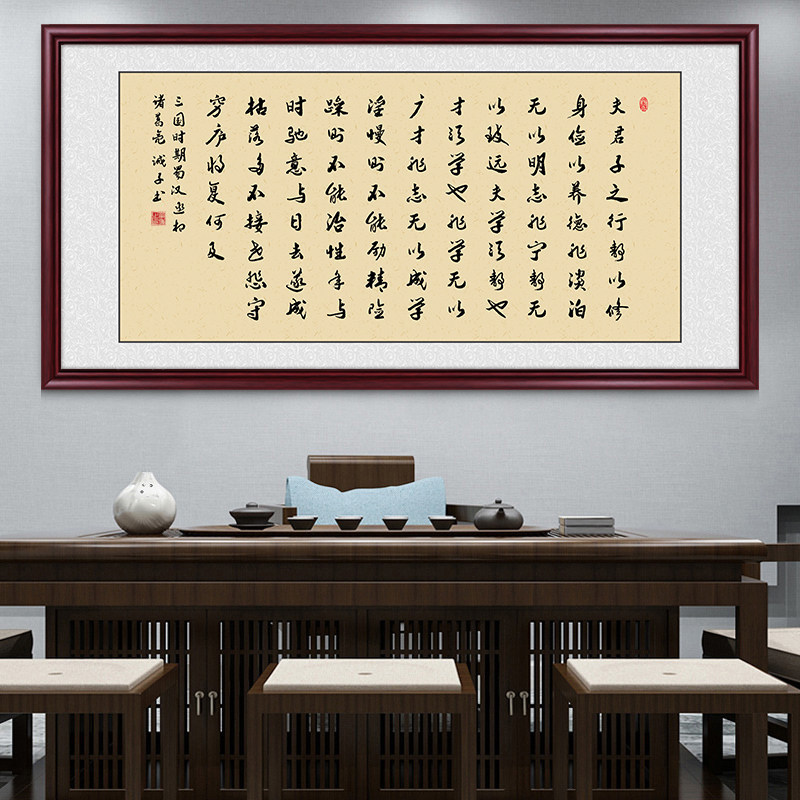 夫君子之行静以修
身俭以养德非澹泊
无以明志非宁静无
以致远夫学须静也
才须学也非学无以
广才非志无以成学
淫慢则不能励精险
躁则不能治性年与
时驰意与日去遂成
枯落多不接世悲守
穷庐将复何及
三国时期蜀汉丞相
诸葛亮诫子书